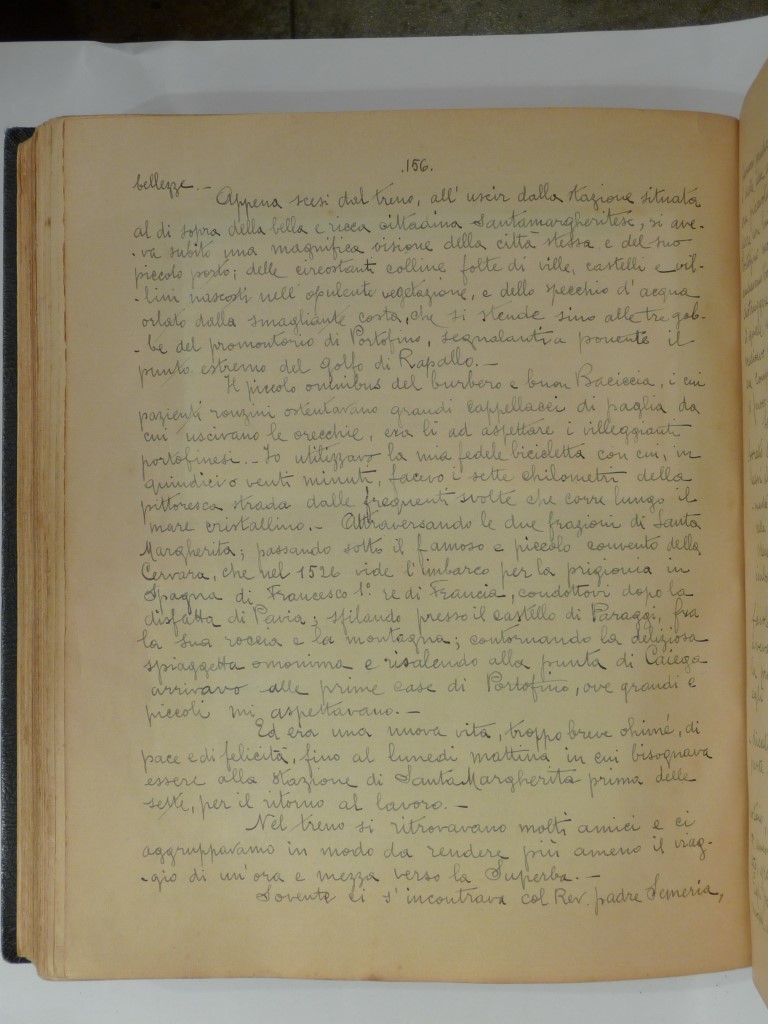 .156.
bellezze. –
Appena scesi dal treno, all'uscir dalla stazione situata
al di sopra della bella e ricca cittadina Santamargheritese, si ave-
-va subito una magnifica visione della città stessa e del suo
piccolo porto; delle circostanti colline folte di ville, castelli e vil-
-lini nascosti nell'opulenta vegetazione, e dello specchio d'acqua
orlato dalla smagliante costa, che si stende sino alle tre gob-
-be del promontorio di Portofino, segnalanti a ponente il
punto estremo del golfo di Rapallo. –
Il piccolo omnibus del burbero e buon Baciccia, i cui
pazienti ronzini ostentavano grandi cappellacci di paglia da
cui uscivano le orecchie, era lì ad aspettare i villeggianti
portofinesi. – Io utilizzavo la mia fedele bicicletta con cui, in
quindici o venti minuti, facevo i sette chilometri della
pittoresca strada dalle frequenti svolte che corre lungo il
mare cristallino. – Attraversando le due frazioni di Santa
Margherita; passando sotto il famoso e piccolo convento della
Cervara, che nel 1526 vide l'imbarco per la prigionia in
Spagna di Francesco 1º re di Francia, condottovi dopo la
disfatta di Pavia; sfilando presso il castello di Paraggi, fra
la sua roccia e la montagna; contornando la deliziosa
spiaggetta omonima e risalendo alla punta di Caiega
arrivavo alle prime case di Portofino, ove grandi e
piccoli mi aspettavano. –
Ed era una nuova vita, troppo breve ohimé, di
pace e di felicità, fino al lunedì mattina in cui bisognava
essere alla stazione di Santa Margherita prima delle
sette, per il ritorno al lavoro. –
Nel treno si ritrovavano molti amici e ci
aggruppavamo in modo da rendere più ameno il viag-
-gio di un'ora e mezza verso la Superba. –
Sovente ci s'incontrava col Rev. padre Semeria,